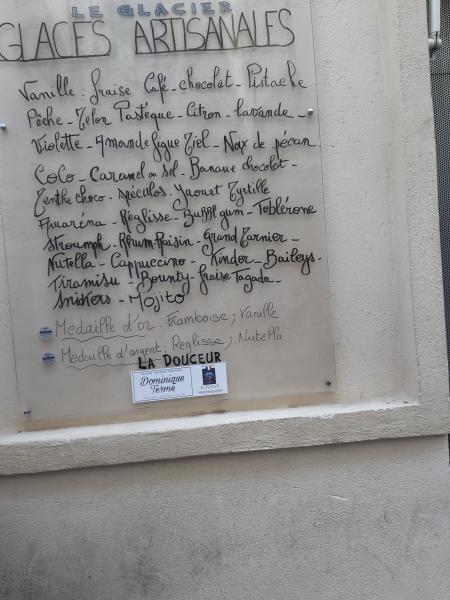 LE GLACIER
GLACES ARTISANALES
Vanille - fraise Café - chocolat - Pistache
Pêche - Melon Pastèque - Citron - lavande -
Violette - Amande figue Miel - Noix de pécan
Coco - Caramel au sel - Banane chocolat -
Menthe choco - spéculos - Yaourt Myrtille
Amaréna - Réglisse - Bubbl gum - Toblérone
Stroumph - Rhum-Raisin - Grand Marnier -
Nutella - Cappuccino - Kinder - Baileys -
Tiramisu - Bounty - fraise Tagada -
Snikers - Mojito
Médaille d'or : Framboise ; Vanille
Médaille d'argent : Reglisse ; Nutella
LA DOUCEUR
Dominique
Terme